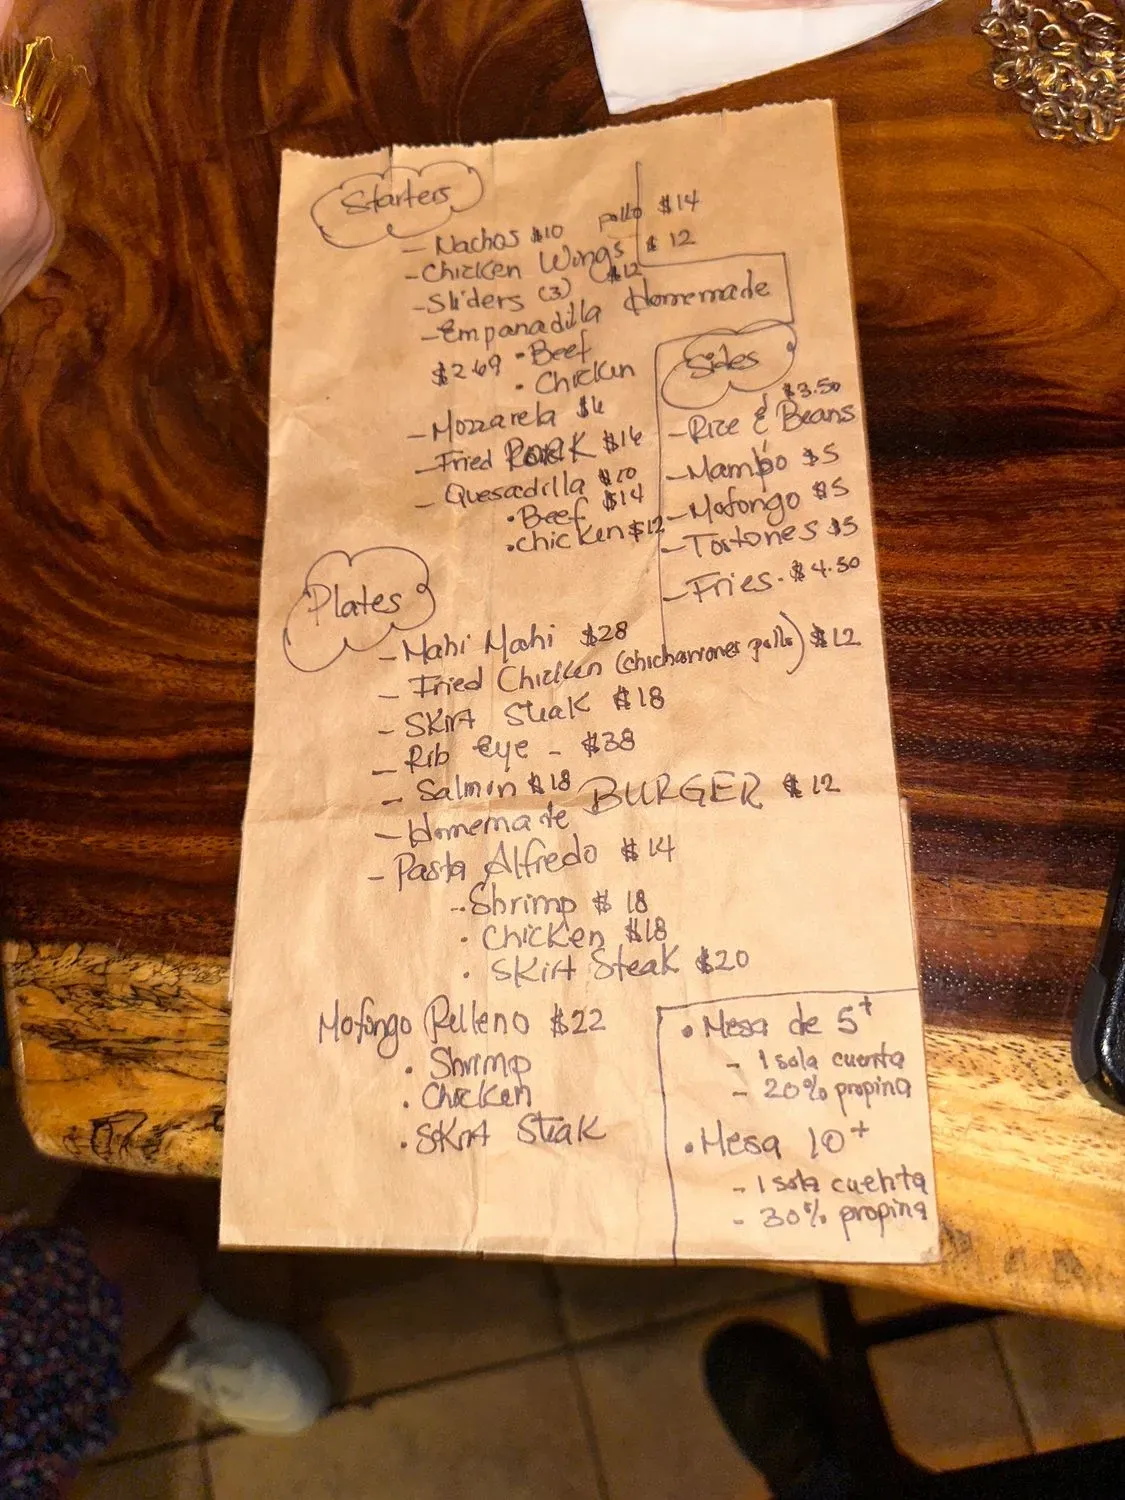 Starters
- Nachos $10 pollo $14
- Chicken Wings $12
- Sliders (3) $12
- Empanadilla Homemade
$2.49 • Beef
• Chicken
- Mozzarela $6
- Fried PORK $16
- Quesadilla $10
• Beef $14
• chicken $12
Sides
$3.50
- Rice & Beans
- Mampo $5
- Mofongo $5
- Tostones $5
- Fries. $4.50
Plates
- Mahi Mahi $28
- Fried Chicken (chicharrones pollo) $12
- Skirt Steak $18
- Rib eye - $38
- Salmon $18
- Homemade BURGER $12
- Pasta Alfredo $14
- Shrimp $18
• Chicken $18
• Skirt Steak $20
Mofongo Relleno $22
• Shrimp
• Chicken
• Skirt Steak
• Mesa de 5+
- 1 sola cuenta
- 20% propina
• Mesa 10+
- 1 sola cuenta
- 30% propina